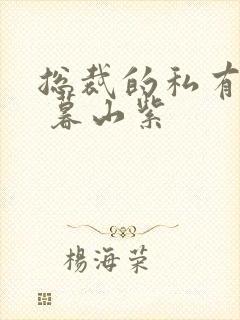 总裁的私有
暮山紫
杨海荣